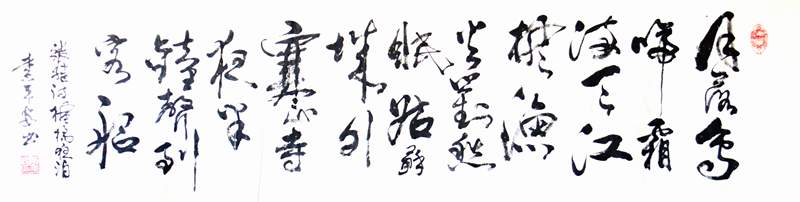 月落烏
啼霜
滿天江
楓漁
火對愁
眠姑蘇
城外
寒山寺
夜半
鐘聲到
客船
張繼詩楓橋夜泊
李書